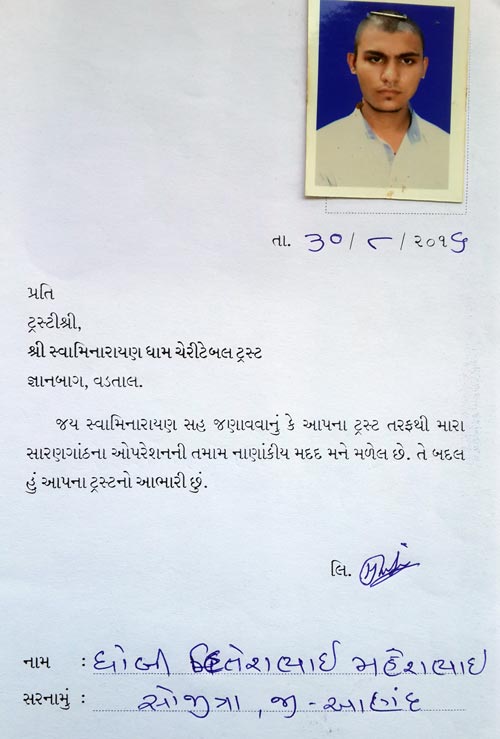 તા. ૩૦/૮/૨૦૧૬
પ્રતિ
ટ્રસ્ટીશ્રી,
શ્રી સ્વામિનારાયણ ધામ ચેરીટેબલ ટ્રસ્ટ
જ્ઞાનબાગ, વડતાલ.
જય સ્વામિનારાયણ સહ જણાવવાનું કે આપના ટ્રસ્ટ તરફથી મારા
સારણગાંઠના ઓપરેશનની તમામ નાણાંકીય મદદ મને મળેલ છે. તે બદલ
હું આપના ટ્રસ્ટનો આભારી છું.
લિ.
નામ : ધોબી હિતેશભાઈ મહેશભાઈ
સરનામું : સોજીત્રા, જી - આણંદ